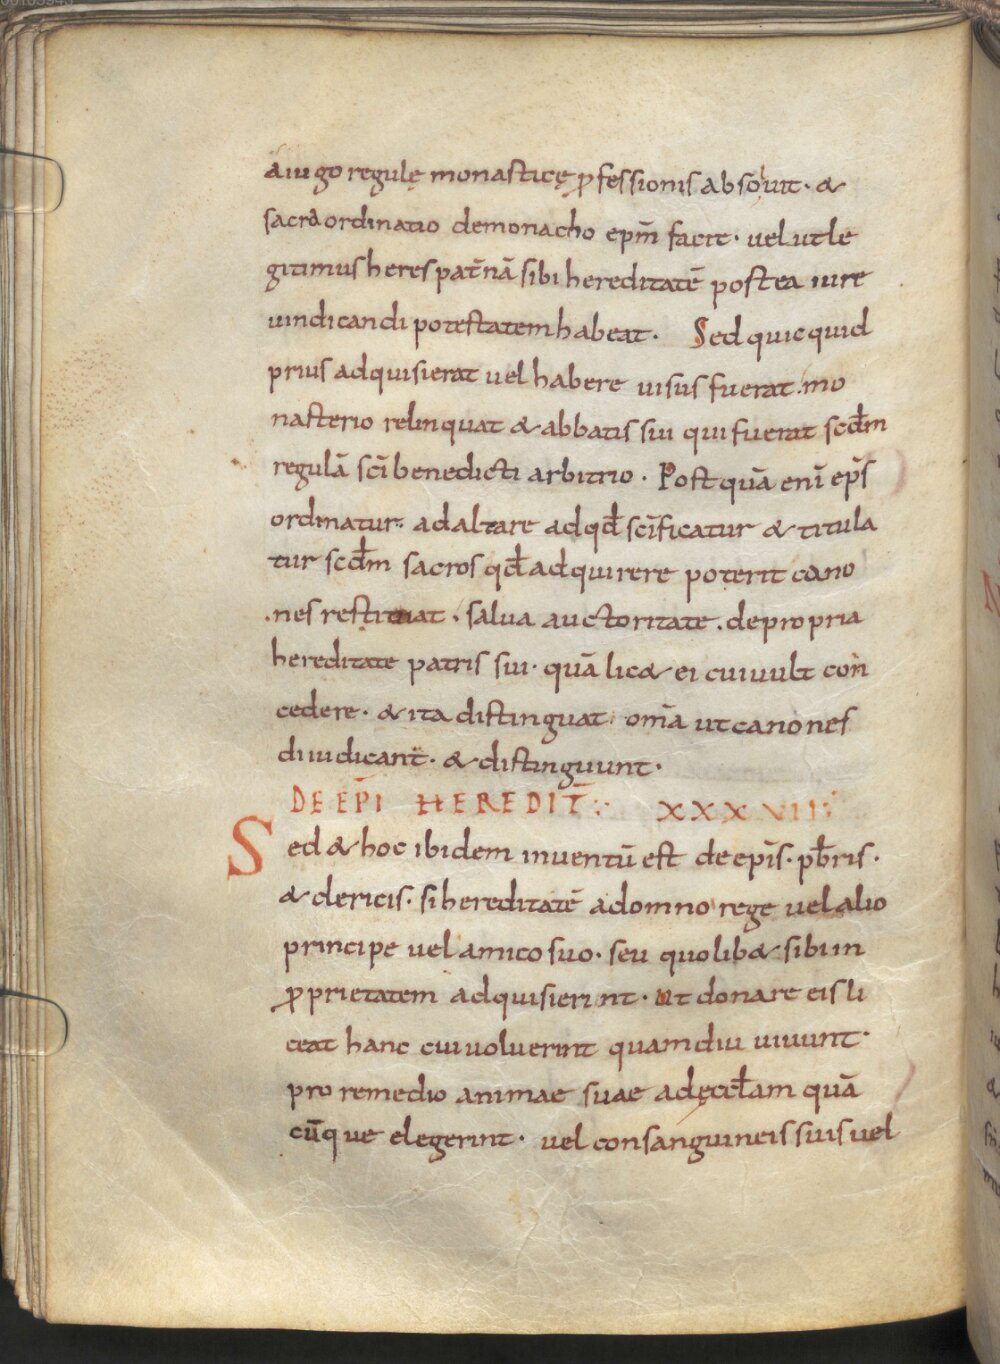 a iugo regulę monasticę ꝓfessionis absoluit· &
sacra ordinatio de monacho epm̄ facit· uel ut le
gitimus heres pat̄nā sibi hereditatē postea iure
uindicandi potestatem habeat· Sed quicquid
prius adquisierat uel habere uisus fuerat· mo
nasterio relinquat & abbatis sui qui fuerat scdm̄
regulā sc̄i benedicti arbitrio· Post quā eni ep̄s
ordinatur· ad altare ad qd̄ sc̄ificatur & titula
tur scdm̄ sacros qd̄ adquirere poterit cano
nes restituat· salua auctoritate· de propria
hereditate patris sui· quā lic& ei cui uult con
cedere· & ita distinguat om̄a ut canones
diiudicant· & distinguunt·
DE EP̄I HEREDIT̄ XXXVII
Sed & hoc ibidem inuentū est de ep̄is· pb̄ris·
& clericis· si hereditatē a domno rege uel alio
principe uel amico suo· seu quolib& sibi in
ꝓprietatem adquisierint· ut donare eis li
ceat hanc cui uoluerint quamdiu uiuunt·
pro remedio animae suae ad ęccl̄am quā
cūque elegerint· uel consanguineis suis uel